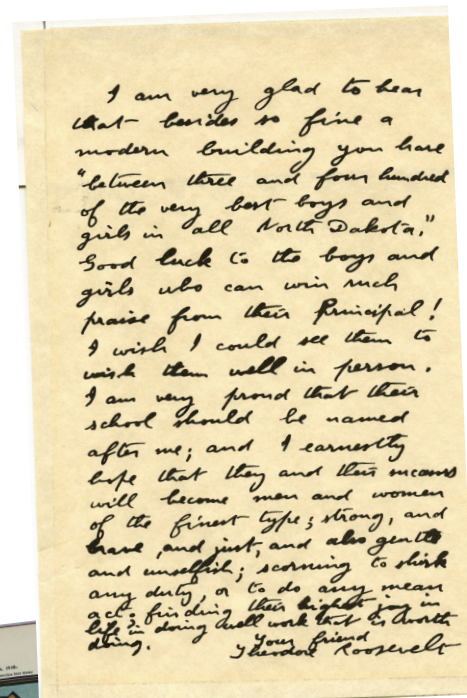 I am very glad to hear
that besides so fine a
modern building you have
"between three and four hundred
of the very best boys and
girls in all North Dakota."
Good luck to the boys and
girls who can win such
praise from their Principal!
I wish I could see them to
wish them well in person.
I am very proud that their
school should be named
after me; and I earnestly
hope that they and their
will become men and women
of the finest type; strong, and
brave, and just, and also gentle
and unselfish; scorning to shirk
any duty, or to do any mean
act; finding their highest joy in
life in doing well work that is worth
doing.
Your friend
Theodore Roosevelt